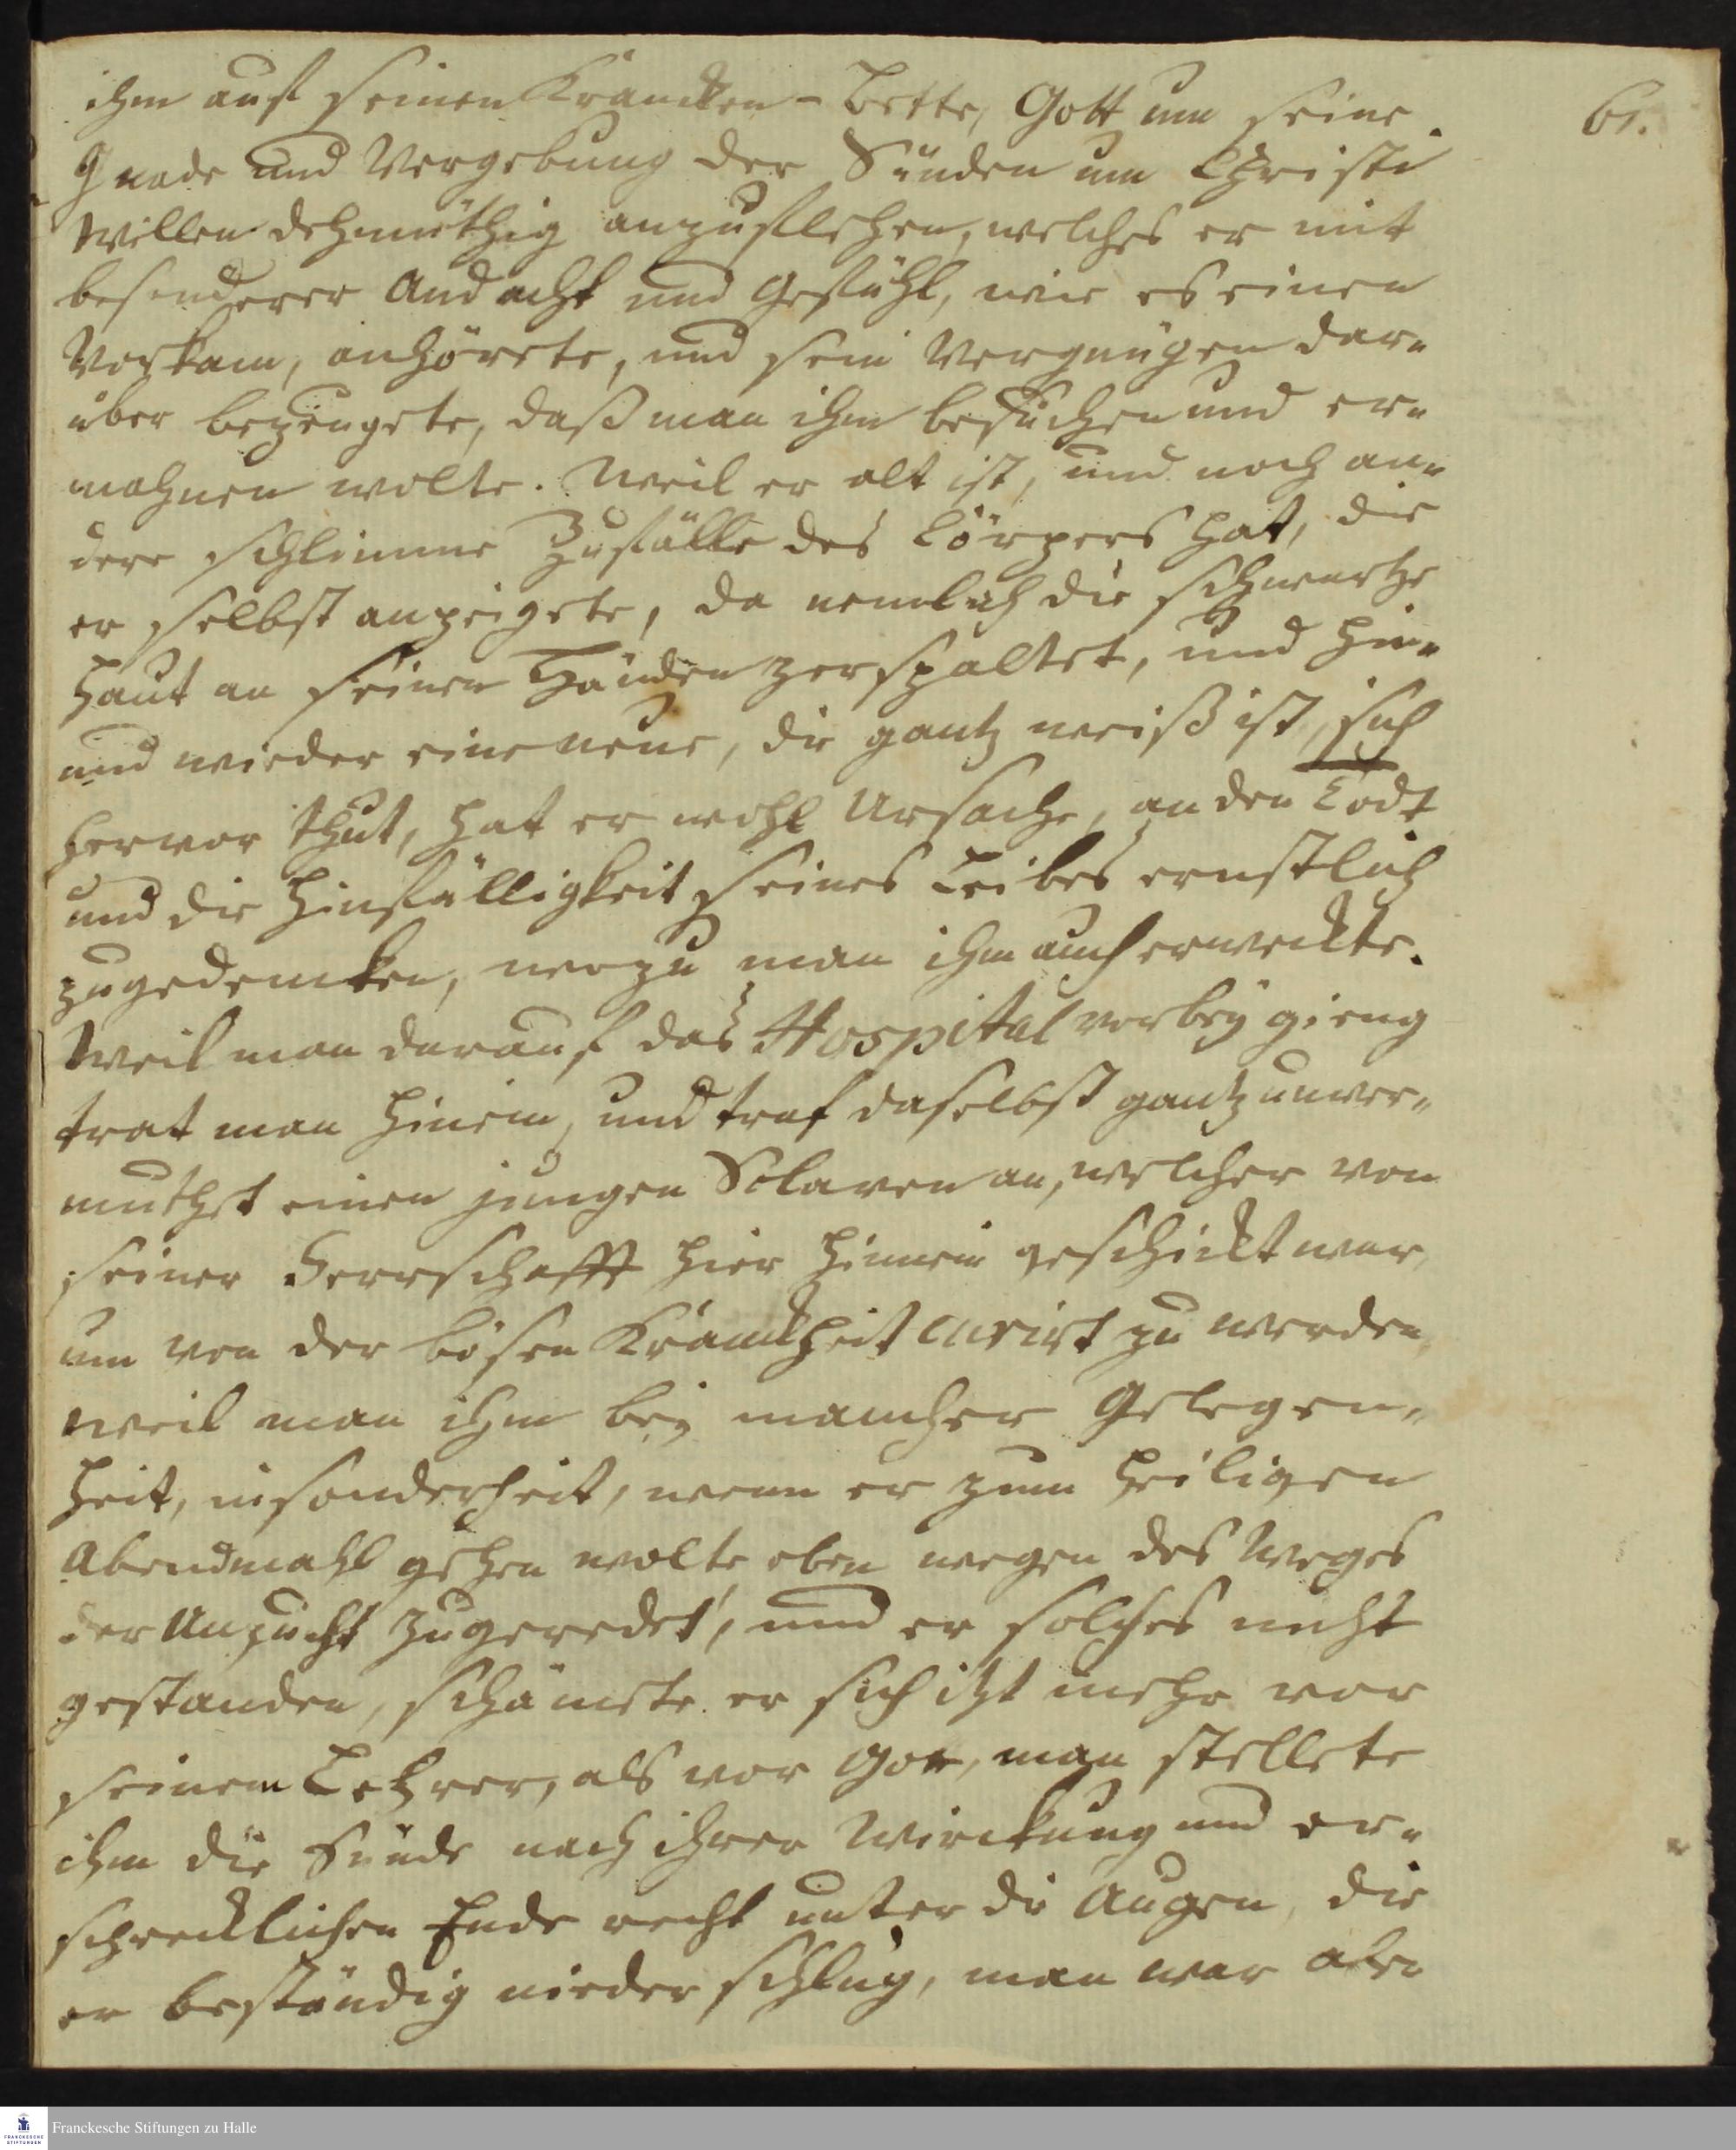 61.
ihm auf seinen Krancken-Bette, Gott um seine
Gnade und Vergebung der Sünden um Christi
Willen dehmüthig anzuflehen, welches er mit
besonderer Andacht und Gefühl, wie es einen
Vorkam, anhörete, und sein Vergnügen dar„
über bezeugete, daß man ihm besuchen und er„
mahnen wolte. Weil er alt ist, und noch an„
dere schlimme Zufälle des Cörpers hat, die
er selbst anzeigete, da nemlich die schwartze
Haut an seinen Händen zerspaltet, und hin„
und wieder eine neue, die gantz weiß ist, sich
hervor thut, hat er wohl Ursache, an den Todt
und die Hinfälligkeit seines Leibes ernstlich
zugedencken, wozu man ihm auch erweckte.
Weil man darauf das Hospital vorbey gieng
trat man hinein, und traf daselbst gantz unver„
muthet einen jungen Sclaven an, welcher von
seiner Herrschafft hier hinein geschickt war,
um von der bösen Kranckheit curirt zu werden,
weil man ihm bey mancher Gelegen„
heit, insonderheit, wenn er zum heiligen
Abendmahl gehen wolte eben wegen des Weges
der Unzucht zugeredet, und er solches nicht
gestanden, schämete er sich itzt mehr vor
seinem Lehrer, als vor Gott, man stellete
ihm die Sünde nach ihrer Wirckung und er„
schrecklichen Ende recht unter die Augen, die
er beständig nieder schlug, man war aber
Franckesche Stiftungen zu Halle